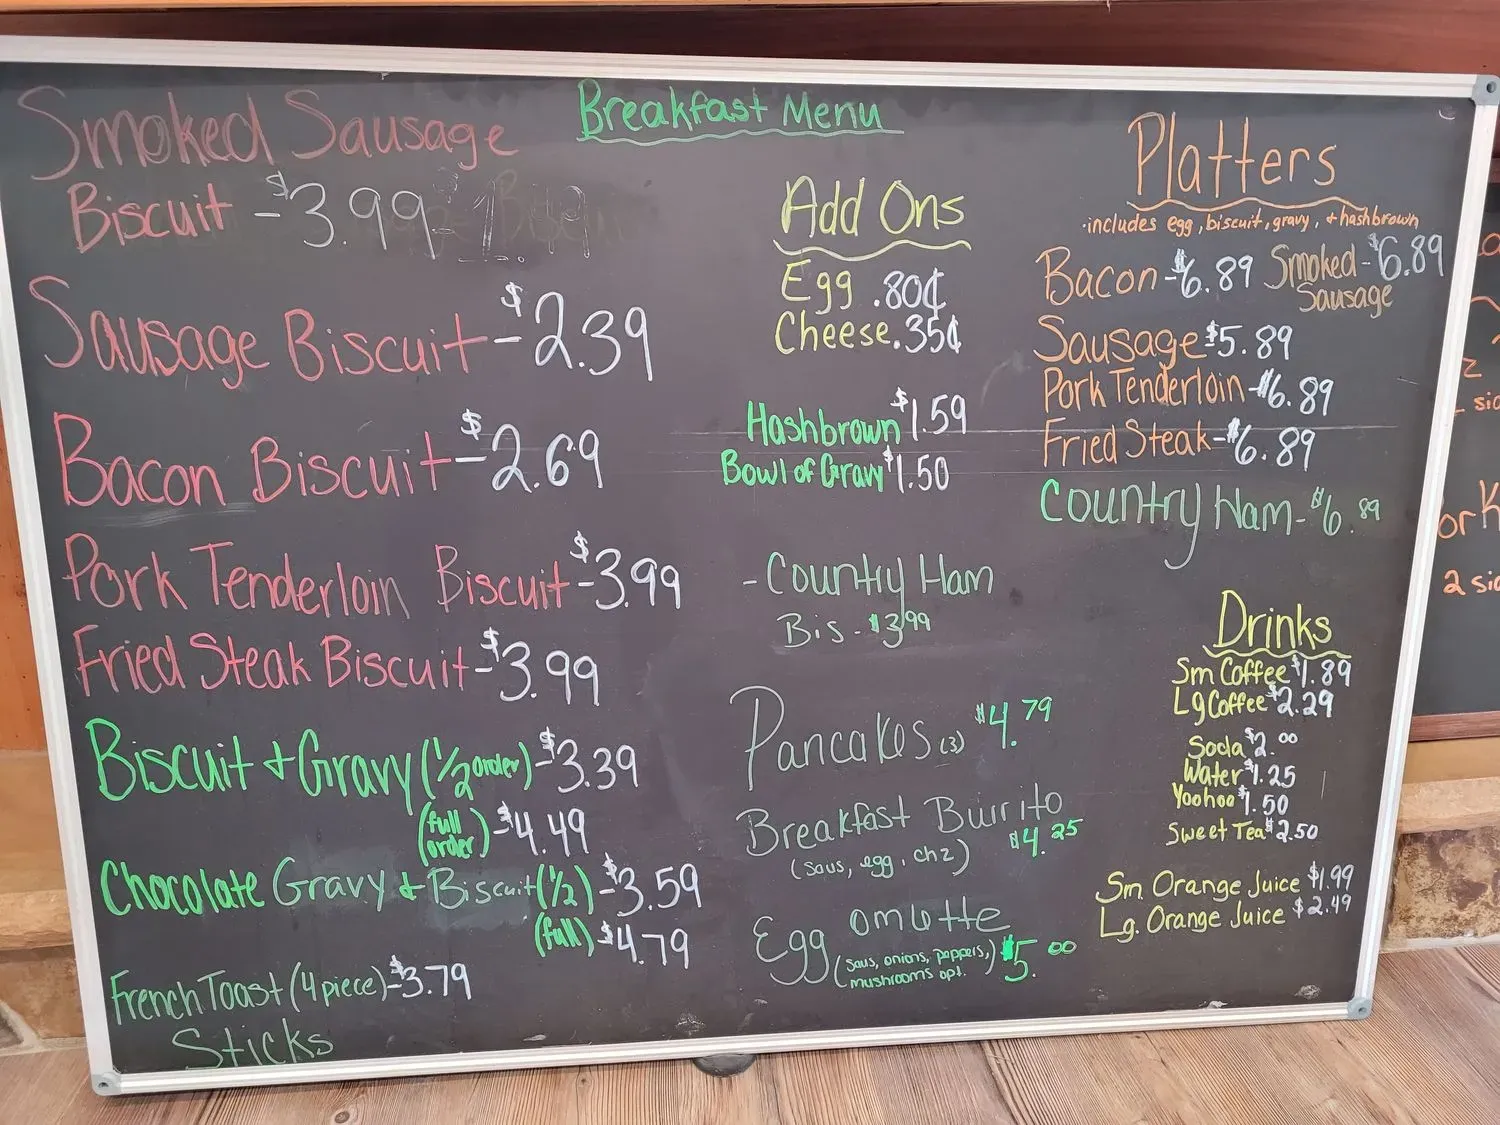 Breakfast Menu
Smoked Sausage
Biscuit - $3.99
Sausage Biscuit - $2.39
Bacon Biscuit - $2.69
Pork Tenderloin Biscuit - $3.99
Fried Steak Biscuit - $3.99
Biscuit + Gravy (1/2 order) - $3.39
(full order) - $4.49
Chocolate Gravy + Biscuit (1/2) - $3.59
(full) - $4.79
French Toast (4 piece) - $3.79
Sticks
Add Ons
Egg .80¢
Cheese .35¢
Hashbrown $1.59
Bowl of Gravy $1.50
- Country Ham
Bis - $3.99
Pancakes (3) $4.79
Breakfast Burrito
(saus, egg, chz) $4.25
Egg omlette
(saus, onions, peppers,
mushrooms opt.) $5.00
Platters
·includes egg, biscuit, gravy, + hashbrown
Bacon - $6.89
Smoked - $6.89
Sausage
Sausage - $5.89
Pork Tenderloin - $6.89
Fried Steak - $6.89
Country Ham - $6.89
Drinks
Sm Coffee $1.89
Lg Coffee $2.29
Soda $2.00
Water $1.25
Yoohoo $1.50
Sweet Tea $2.50
Sm. Orange Juice $1.99
Lg. Orange Juice $2.49
2 sid